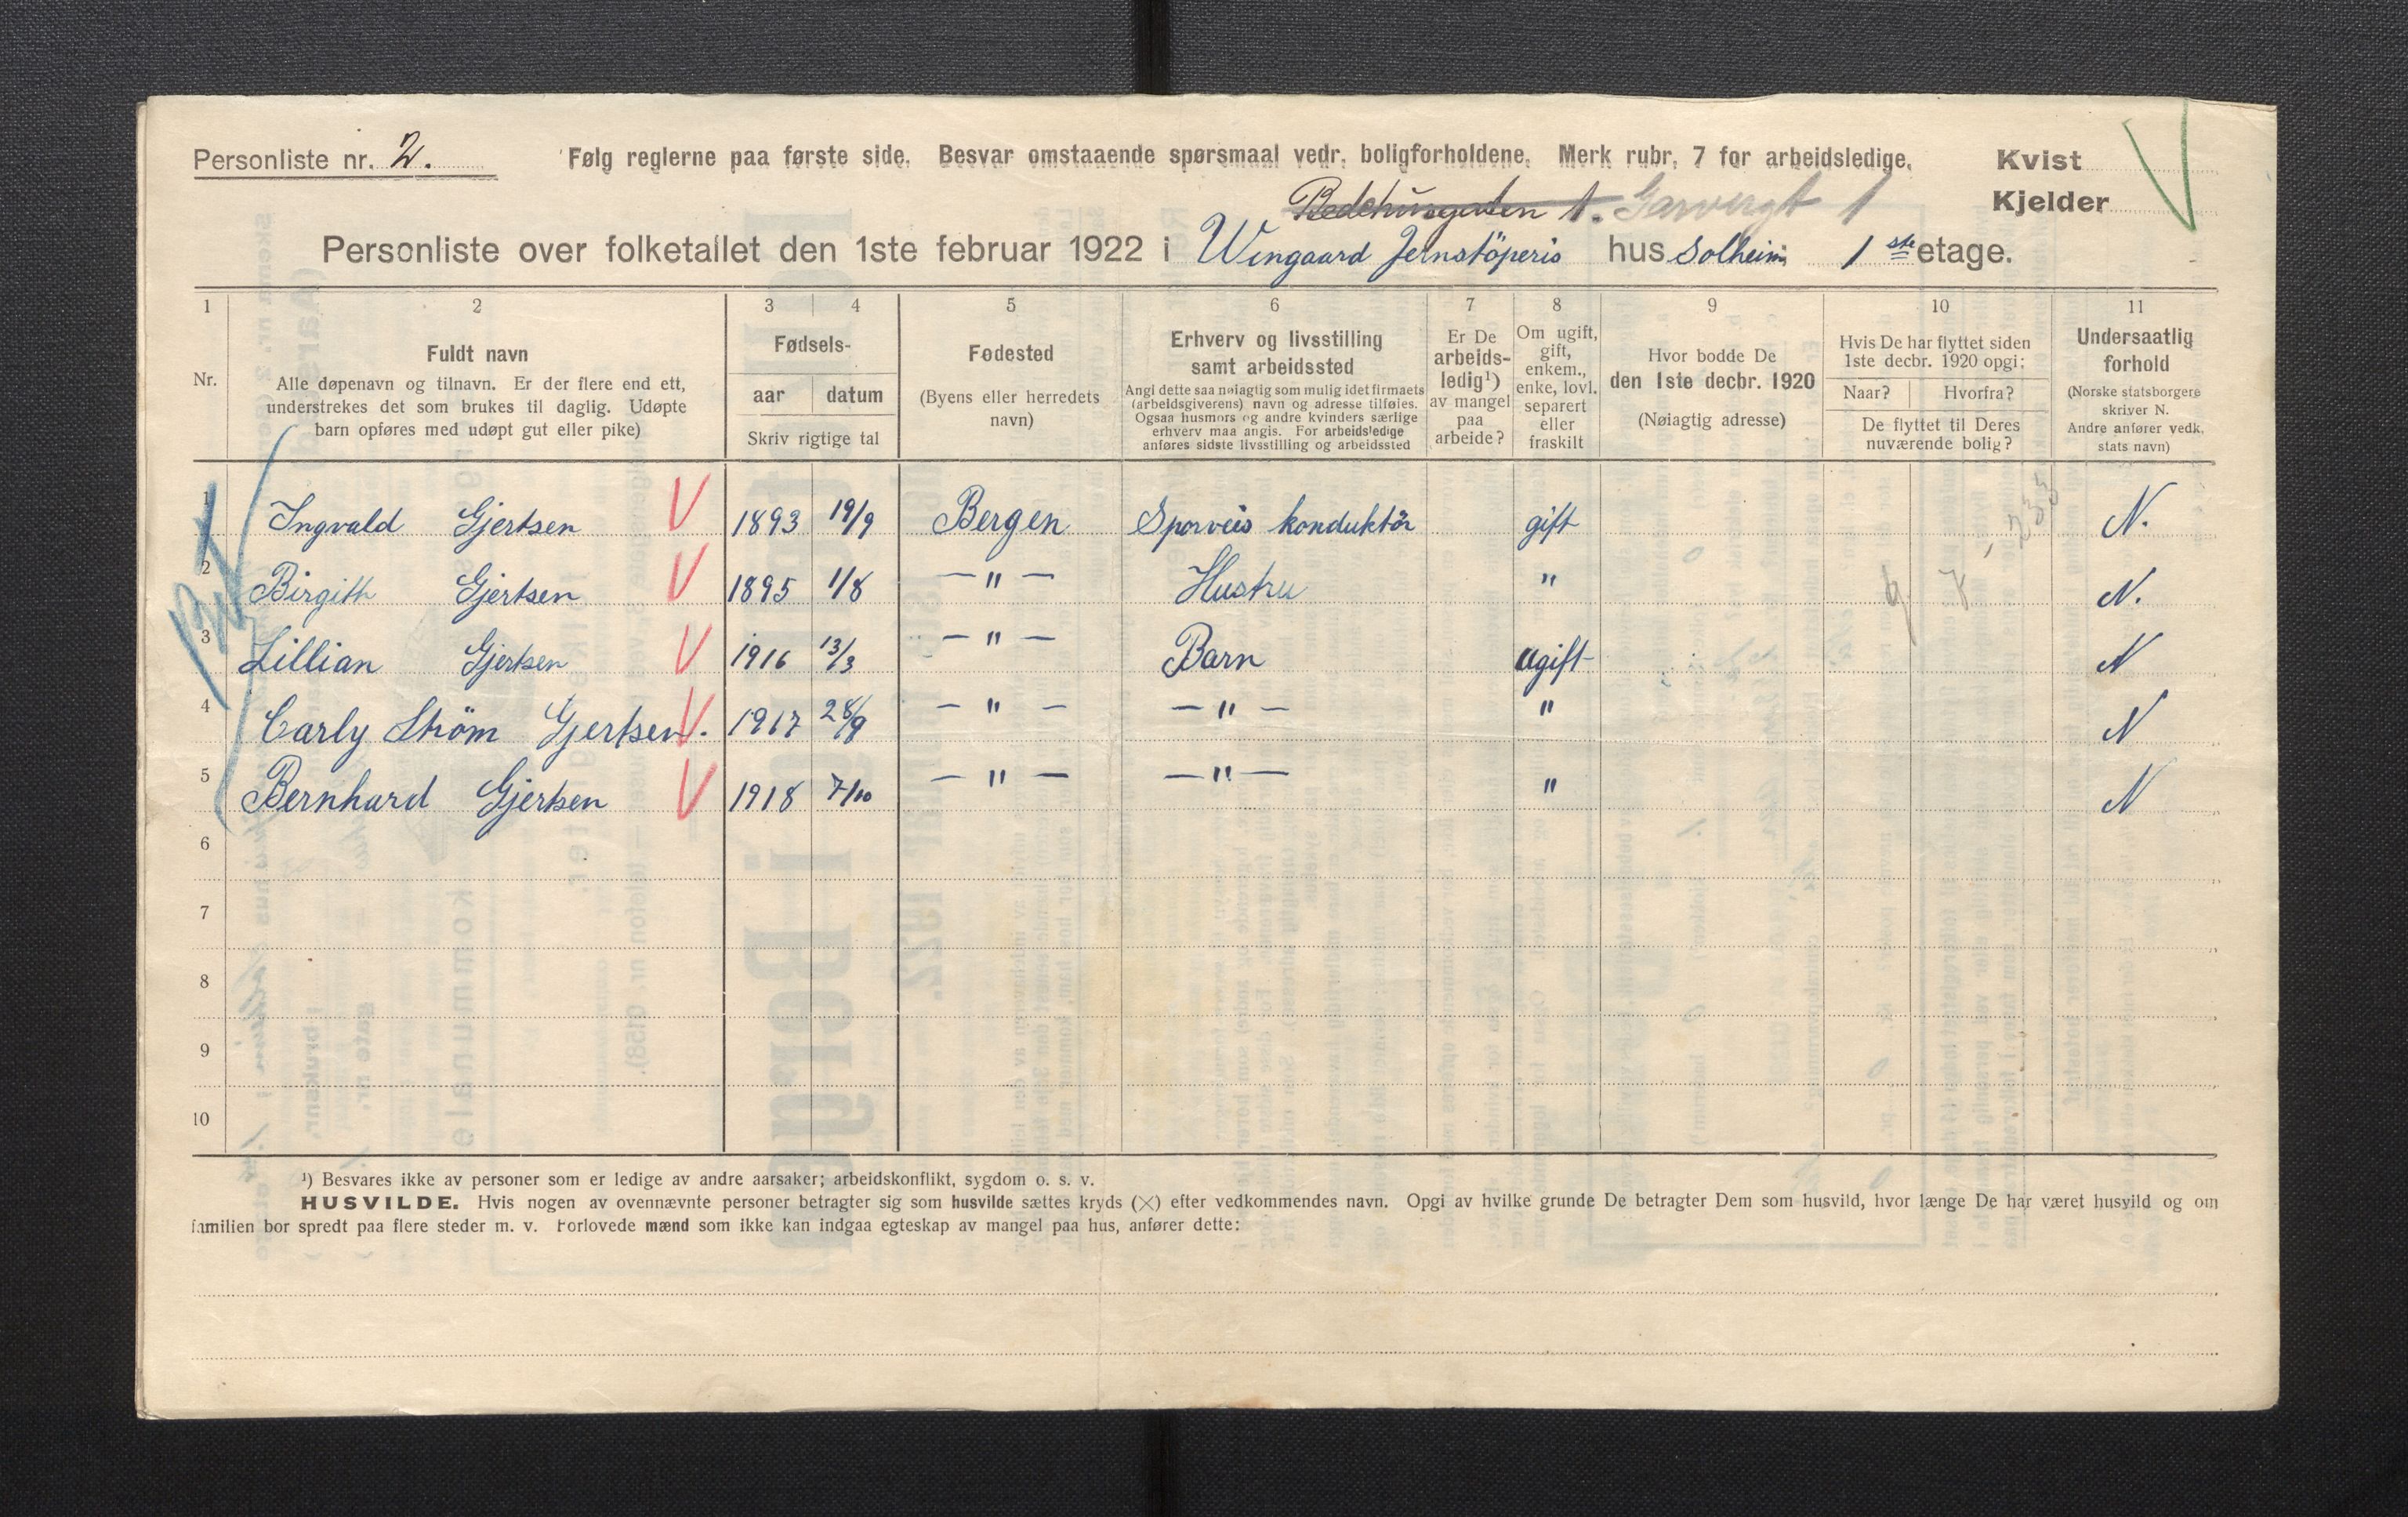 Personliste nr. 2. Følg reglerne paa første side. Besvar omstaaende spørsmaal vedr. boligforholdene. Merk rubr. 7 for arbeidsledige. Kvist
Bedehusgaten 1. 1 Kjelder
Personliste over folketallet den 1ste februar 1922 i Wingaard Jernstöperis hus Solheim 1 ste etage.
1 2 3 4 5 6 7 8 9 10 11
Nr.
Fuldt navn
Alle døpenavn og tilnavn. Er der flere end ett,
understrekes det som brukes til daglig. Udøpte
barn opføres med udøpt gut eller pike)
Fødsels-
aar datum
Skriv rigtige tal
Fødested
(Byens eller herredets
navn)
Erhverv og livsstilling
samt arbeidssted
Angi dette saa nøiagtig som mulig idet firmaets
(arbeidsgiverens) navn og adresse tilføies.
Ogsaa husmors og andre kvinders særlige
erhverv maa angis. For arbeidsledige
anføres sidste livsstilling og arbeidssted
Er De
arbeids-
ledig¹)
av mangel
paa
arbeide?
Om ugift,
gift,
enkem.,
enke, lovl.
separert
eller
fraskilt
Hvor bodde De
den 1ste decbr. 1920
(Nøiagtig adresse)
Hvis De har flyttet siden
1ste decbr. 1920 opgi:
Naar? Hvorfra?
De flyttet til Deres
nuværende bolig?
Undersaatlig
forhold
(Norske statsborgere
skriver N.
Andre anfører vedk.
stats navn)
1 Ingvald Gjertsen V 1893 19/9 Bergen Sporveis konduktör gift N.
2 Birgith Gjertsen V 1895 1/8 — " — Hustru " N.
3 Lillian Gjertsen V 1916 13/3 — " — Barn ugift N
4 Carly Ström Gjertsen. V 1917 28/9 — " — — " — " N
5 Bernhard Gjertsen V 1918 7/10 — " — — " — " N
6
7
8
9
10
¹) Besvares ikke av personer som er ledige av andre aarsaker; arbeidskonflikt, sygdom o. s. v.
HUSVILDE. Hvis nogen av ovennævnte personer betragter sig som husvilde sættes kryds (×) efter vedkommendes navn. Opgi av hvilke grunde De betragter Dem som husvild, hvor længe De har været husvild og om
familien bor spredt paa flere steder m. v. Forlovede mænd som ikke kan indgaa egteskap av mangel paa hus, anfører dette: